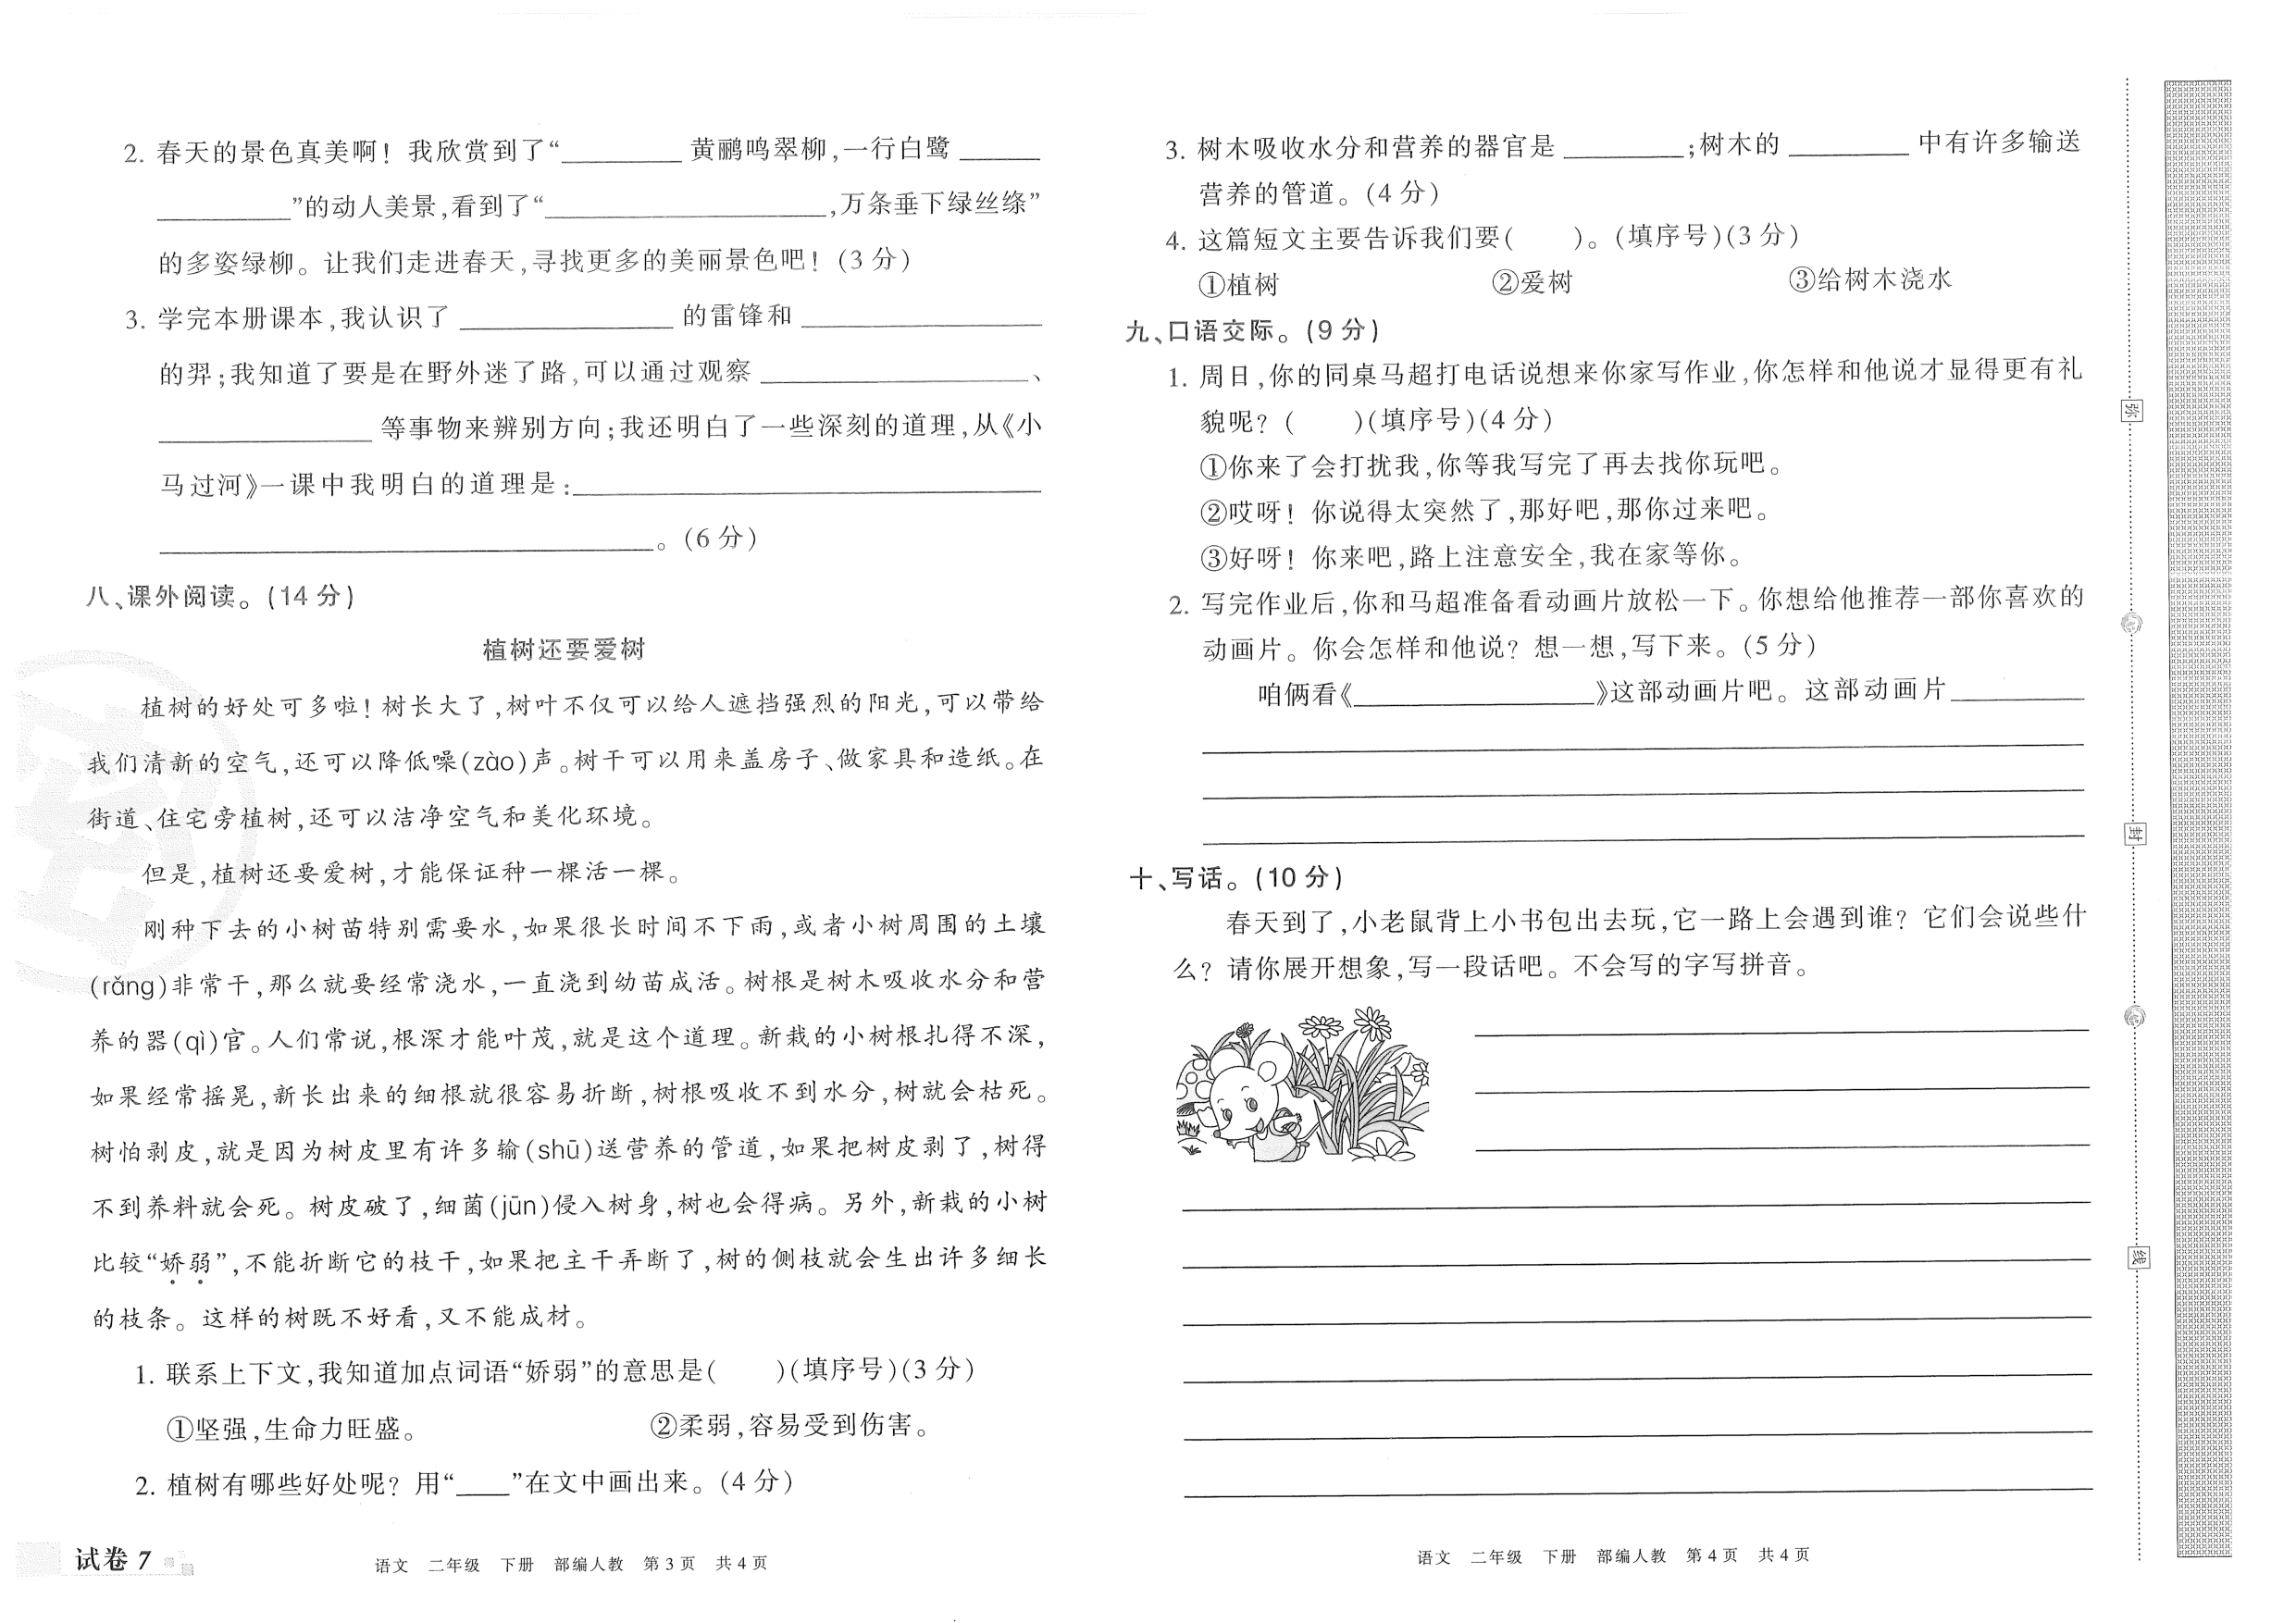 2. 春天的景色真美啊！我欣赏到了“________黄鹂鸣翠柳，一行白鹭______
__________”的动人美景，看到了“____________________，万条垂下绿丝绦”
的多姿绿柳。让我们走进春天，寻找更多的美丽景色吧！(3 分)
3. 学完本册课本，我认识了________________的雷锋和__________________
的羿；我知道了要是在野外迷了路，可以通过观察____________________、
________________等事物来辨别方向；我还明白了一些深刻的道理，从《小
马过河》一课中我明白的道理是：___________________________________
_____________________________________。(6 分)
八、课外阅读。(14 分)
植树还要爱树
植树的好处可多啦！树长大了，树叶不仅可以给人遮挡强烈的阳光，可以带给
我们清新的空气，还可以降低噪(zào)声。树干可以用来盖房子、做家具和造纸。在
街道、住宅旁植树，还可以洁净空气和美化环境。
但是，植树还要爱树，才能保证种一棵活一棵。
刚种下去的小树苗特别需要水，如果很长时间不下雨，或者小树周围的土壤
(rǎng)非常干，那么就要经常浇水，一直浇到幼苗成活。树根是树木吸收水分和营
养的器(qì)官。人们常说，根深才能叶茂，就是这个道理。新栽的小树根扎得不深，
如果经常摇晃，新长出来的细根就很容易折断，树根吸收不到水分，树就会枯死。
树怕剥皮，就是因为树皮里有许多输(shū)送营养的管道，如果把树皮剥了，树得
不到养料就会死。树皮破了，细菌(jūn)侵入树身，树也会得病。另外，新栽的小树
比较“娇弱”，不能折断它的枝干，如果把主干弄断了，树的侧枝就会生出许多细长
的枝条。这样的树既不好看，又不能成材。
1. 联系上下文，我知道加点词语“娇弱”的意思是(    )(填序号)(3 分)
①坚强，生命力旺盛。 ②柔弱，容易受到伤害。
2. 植树有哪些好处呢？用“____”在文中画出来。(4 分)
试卷 7
语文 二年级 下册 部编人教 第 3 页 共 4 页
3. 树木吸收水分和营养的器官是_________；树木的_________中有许多输送
营养的管道。(4 分)
4. 这篇短文主要告诉我们要(    )。(填序号)(3 分)
①植树 ②爱树 ③给树木浇水
九、口语交际。(9 分)
1. 周日，你的同桌马超打电话说想来你家写作业，你怎样和他说才显得更有礼
貌呢？(    )(填序号)(4 分)
①你来了会打扰我，你等我写完了再去找你玩吧。
②哎呀！你说得太突然了，那好吧，那你过来吧。
③好呀！你来吧，路上注意安全，我在家等你。
2. 写完作业后，你和马超准备看动画片放松一下。你想给他推荐一部你喜欢的
动画片。你会怎样和他说？想一想，写下来。(5 分)
咱俩看《__________________》这部动画片吧。这部动画片__________
十、写话。(10 分)
春天到了，小老鼠背上小书包出去玩，它一路上会遇到谁？它们会说些什
么？请你展开想象，写一段话吧。不会写的字写拼音。
语文 二年级 下册 部编人教 第 4 页 共 4 页
弥
封
线